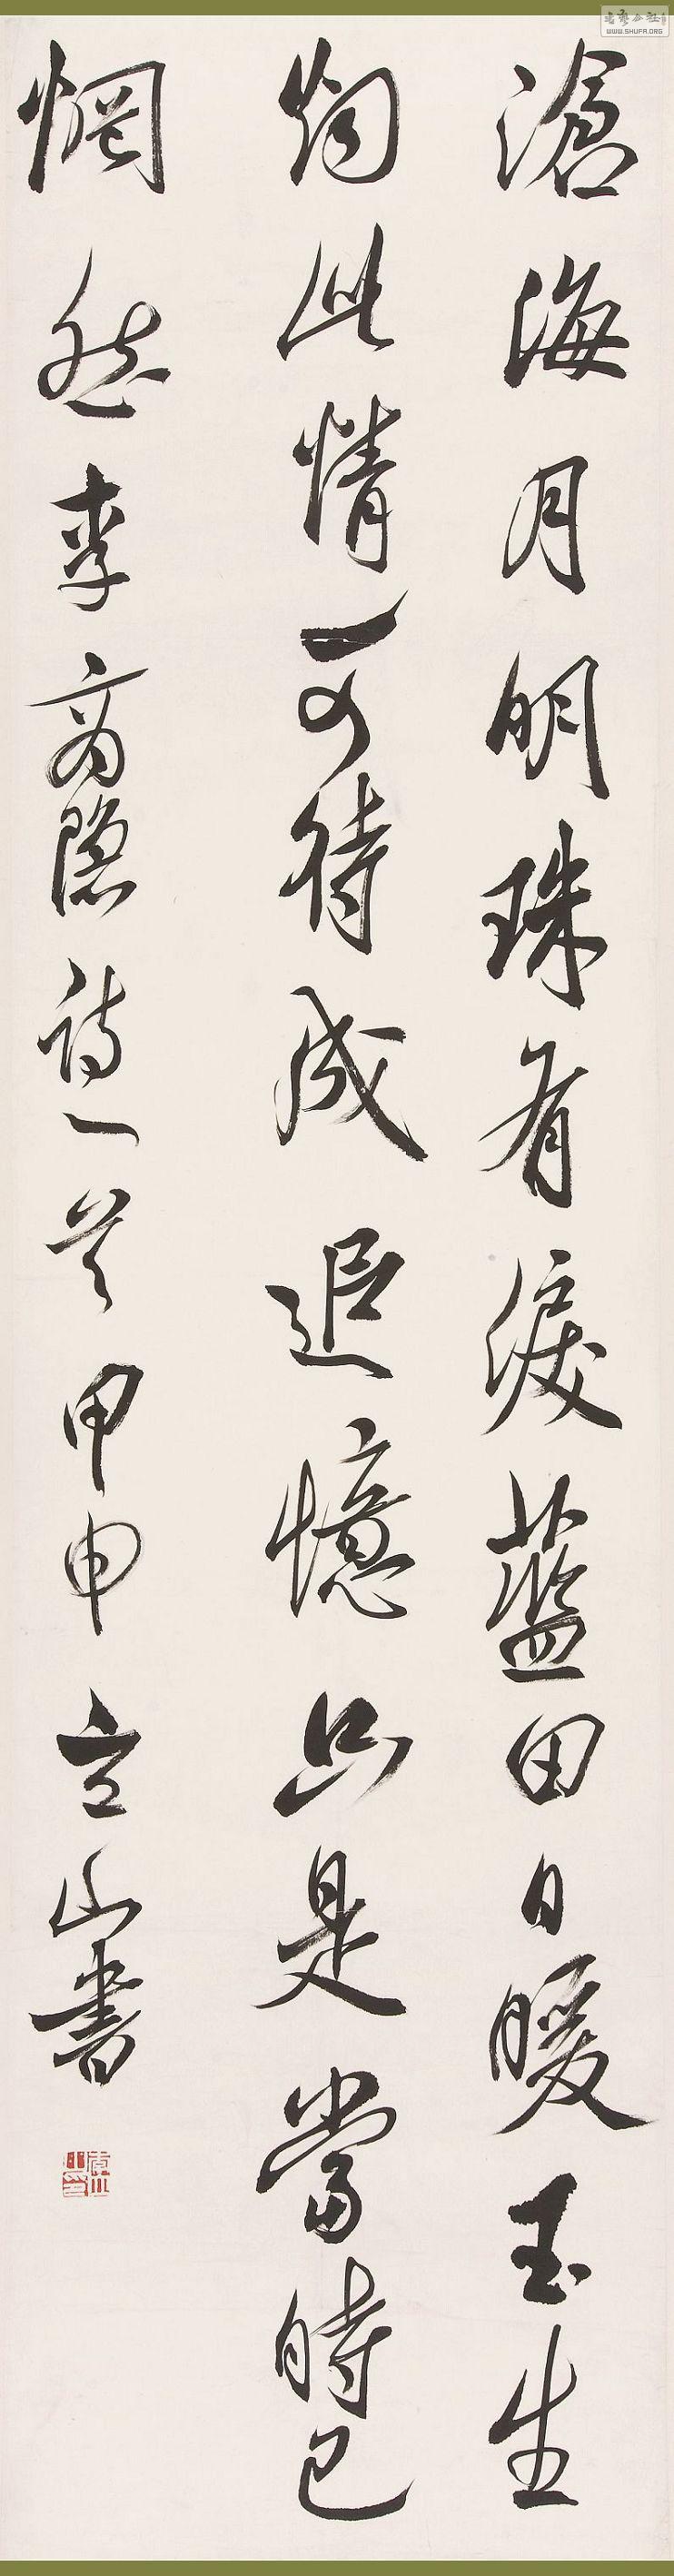 滄海月明珠有淚藍田日暖玉生
烟此情可待成追憶只是當時已
惘然李商隱詩一首甲申立山書
WWW.SHUFA.ORG